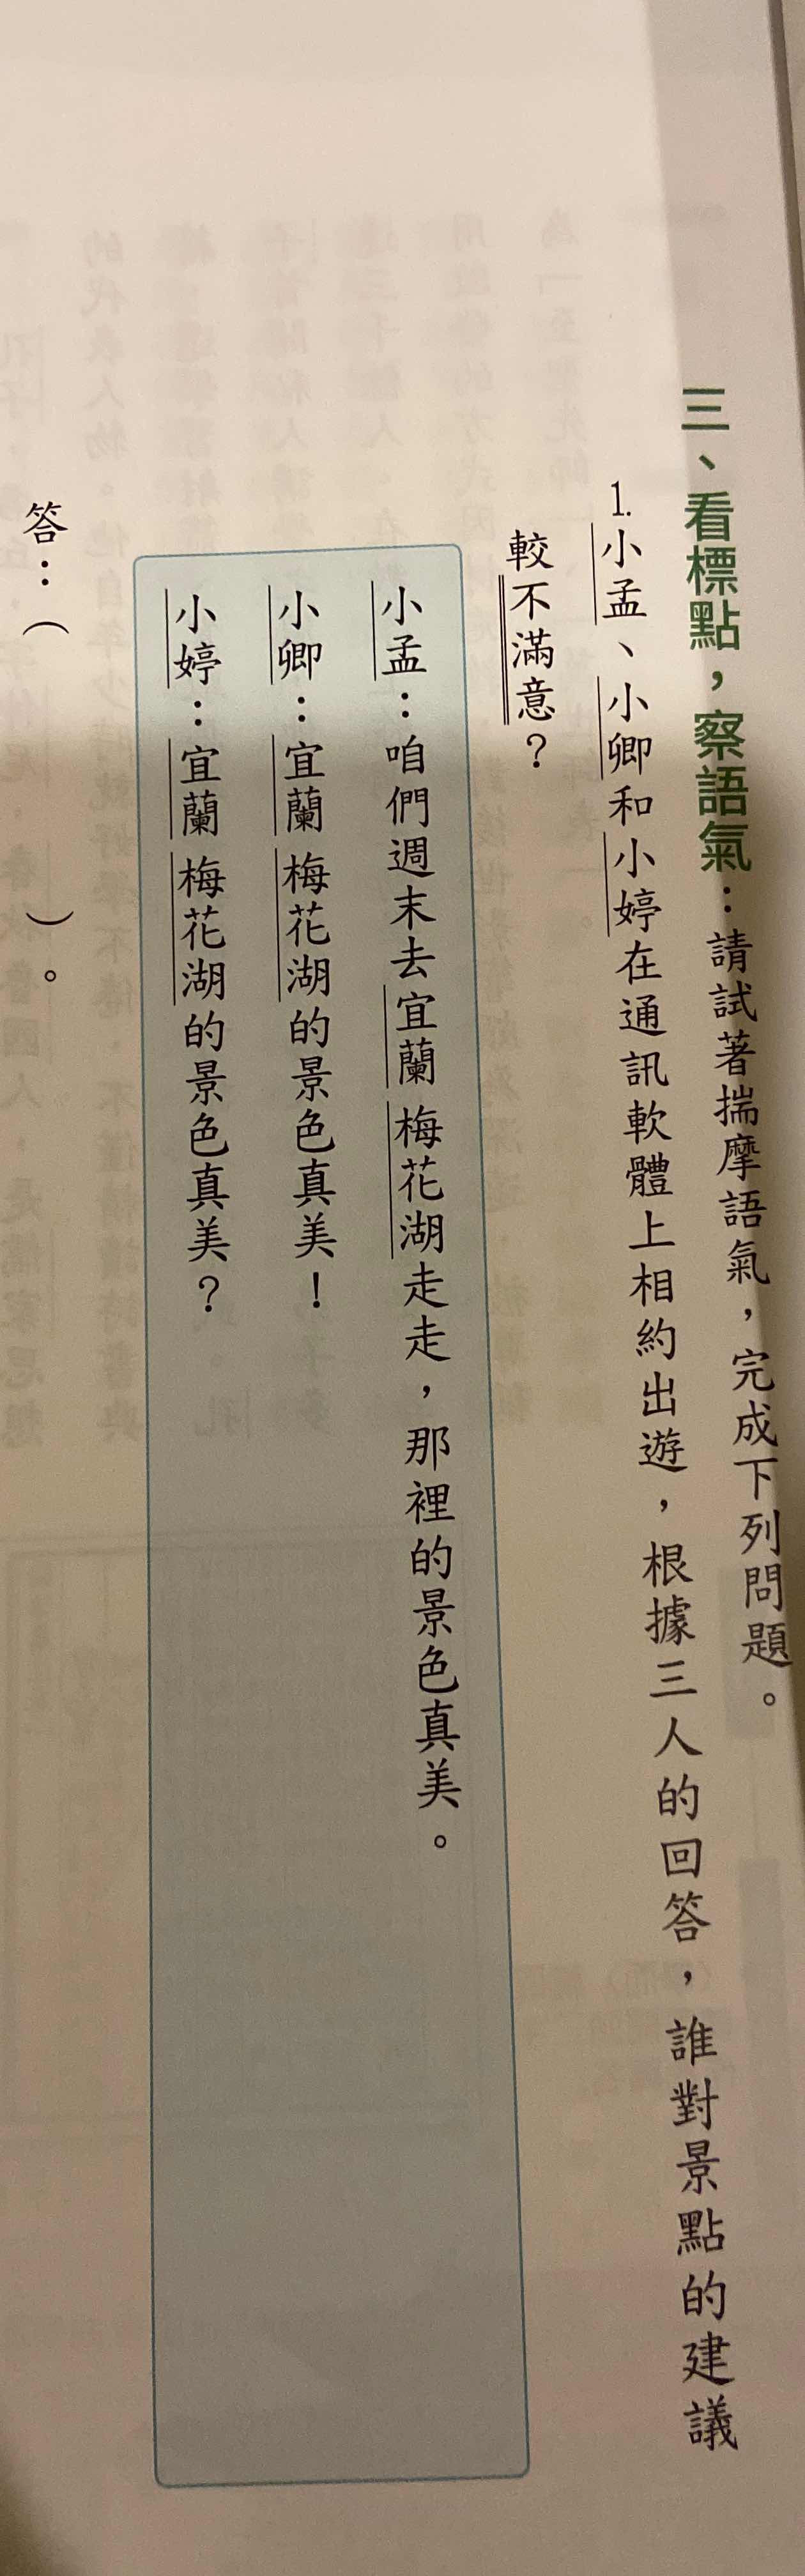 三、看標點，察語氣：請試著揣摩語氣，完成下列問題。
1.小孟、小卿和小婷在通訊軟體上相約出遊，根據三人的回答，誰對景點的建議
較不滿意？
小孟：咱們週末去宜蘭梅花湖走走，那裡的景色真美。
小卿：宜蘭梅花湖的景色真美！
小婷：宜蘭梅花湖的景色真美？
答：（　　　　　）。